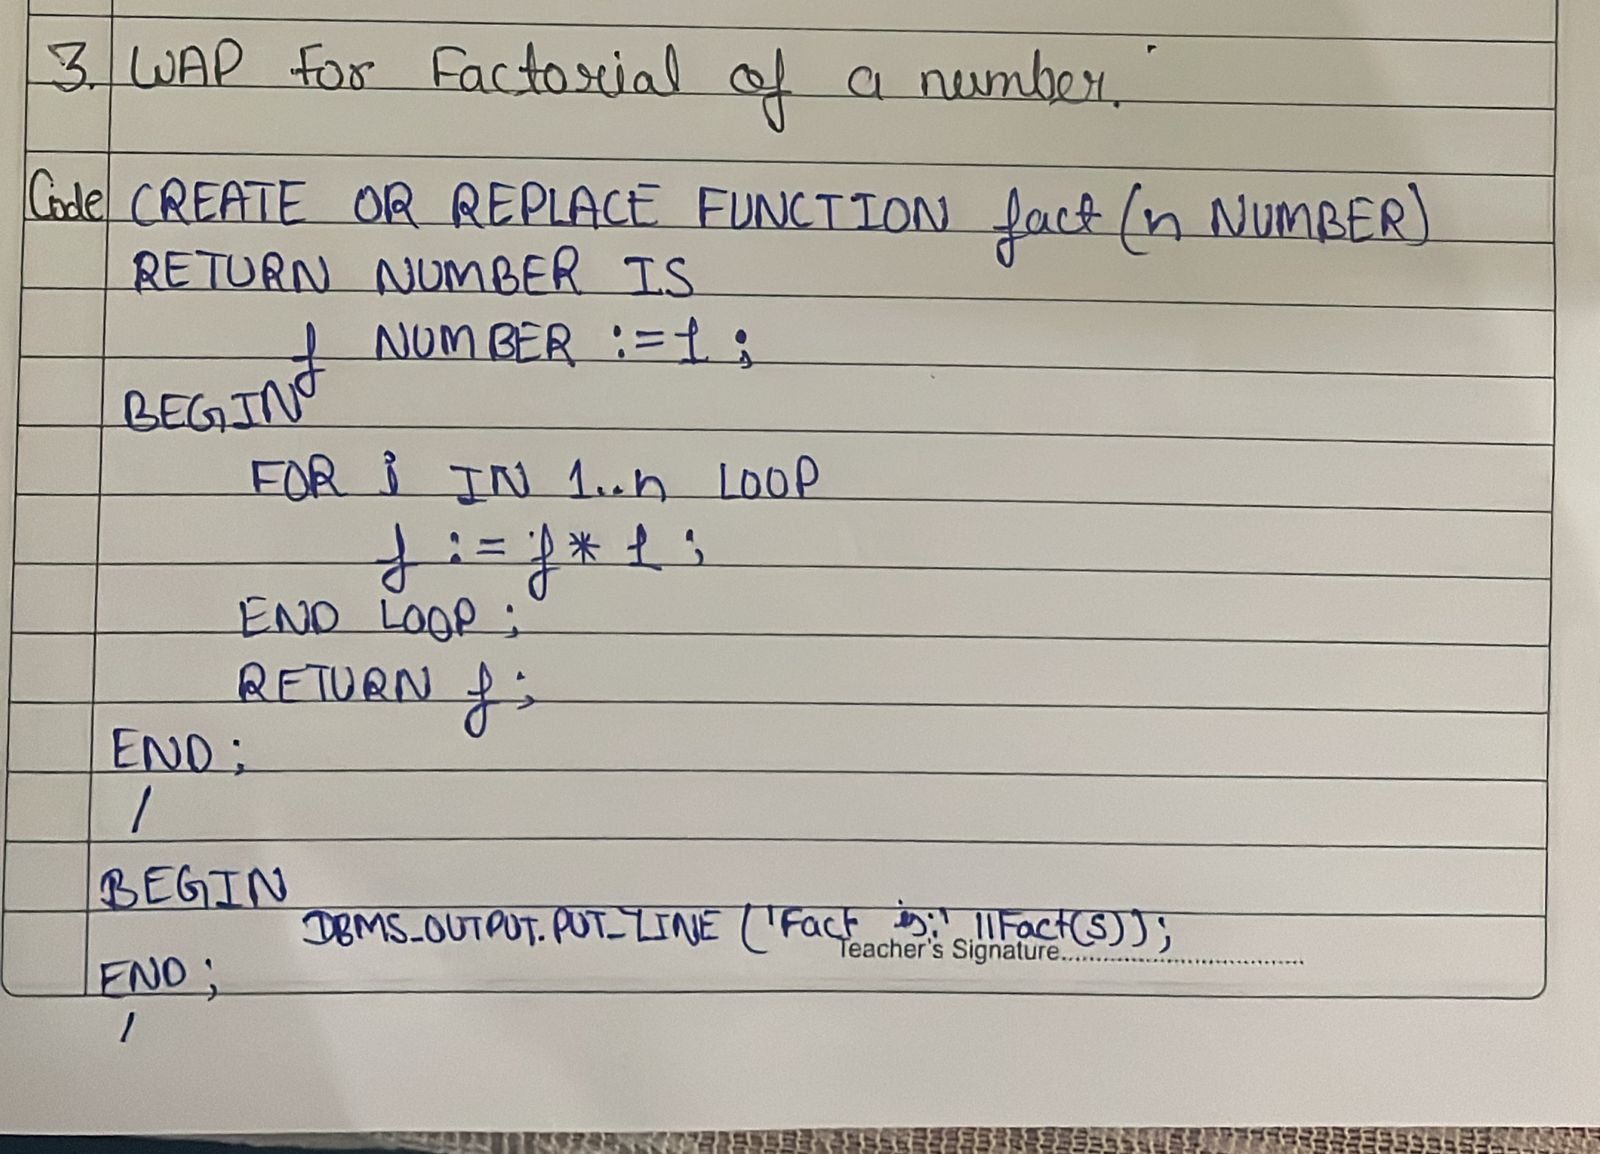 3. WAP for Factorial of a number.
Code CREATE OR REPLACE FUNCTION fact (n NUMBER)
RETURN NUMBER IS
f NUMBER := 1 ;
BEGIN
FOR i IN 1..n LOOP
f := f * 1 ;
END LOOP ;
RETURN f ;
END ;
/
BEGIN
DBMS_OUTPUT.PUT_LINE ('Fact is:' ||Fact(5));
Teacher's Signature................................
END ;
/